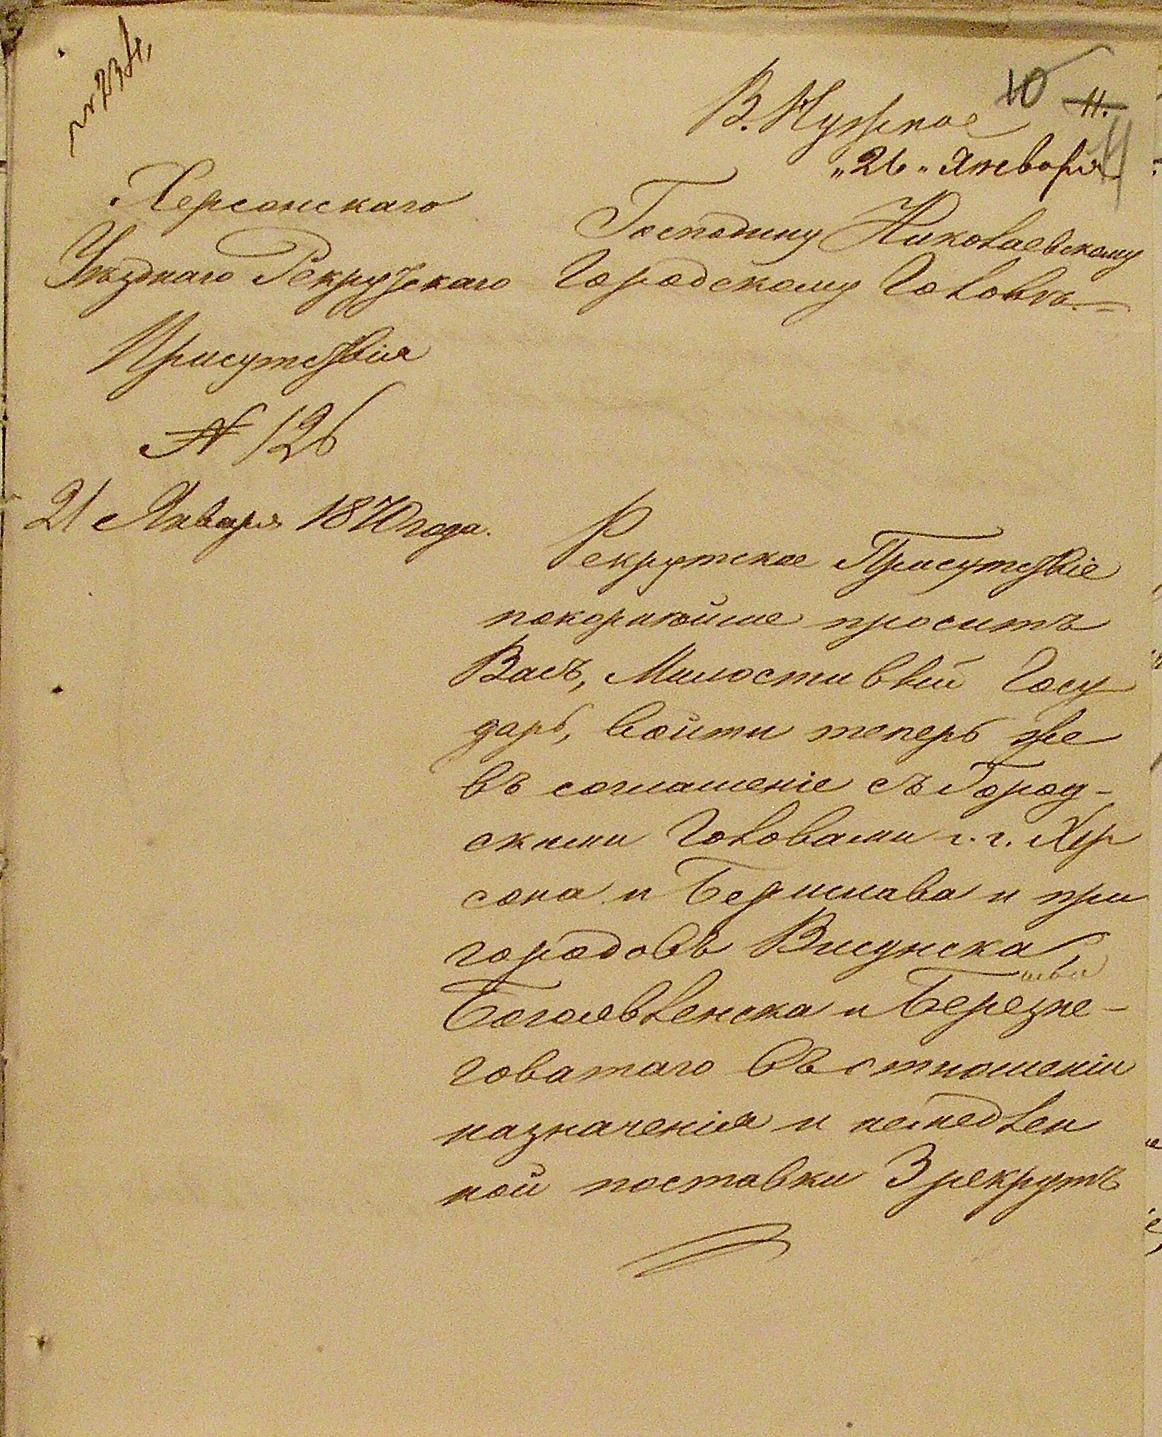 № 234,
10 11.
В. Нужное
"26" Января
11
Херсонскаго
Уѣзднаго Рекрутскаго
Присутствія
№ 126
21 Января 1870 года.
Господину Николаевскому
Городскому Головѣ.
Рекрутское Присутствіе
покорнѣйше проситъ
Васъ, Милостивый Госу
дарь, войти теперь же
въ соглашеніе съ Город-
скими Головами г.г. Хер
сона и Берислава и при
городовъ Висунска,
Богоявленска и Березне-
говатаго въ отношеніи
назначенія и немедлен
ной поставки 3 рекрутъ